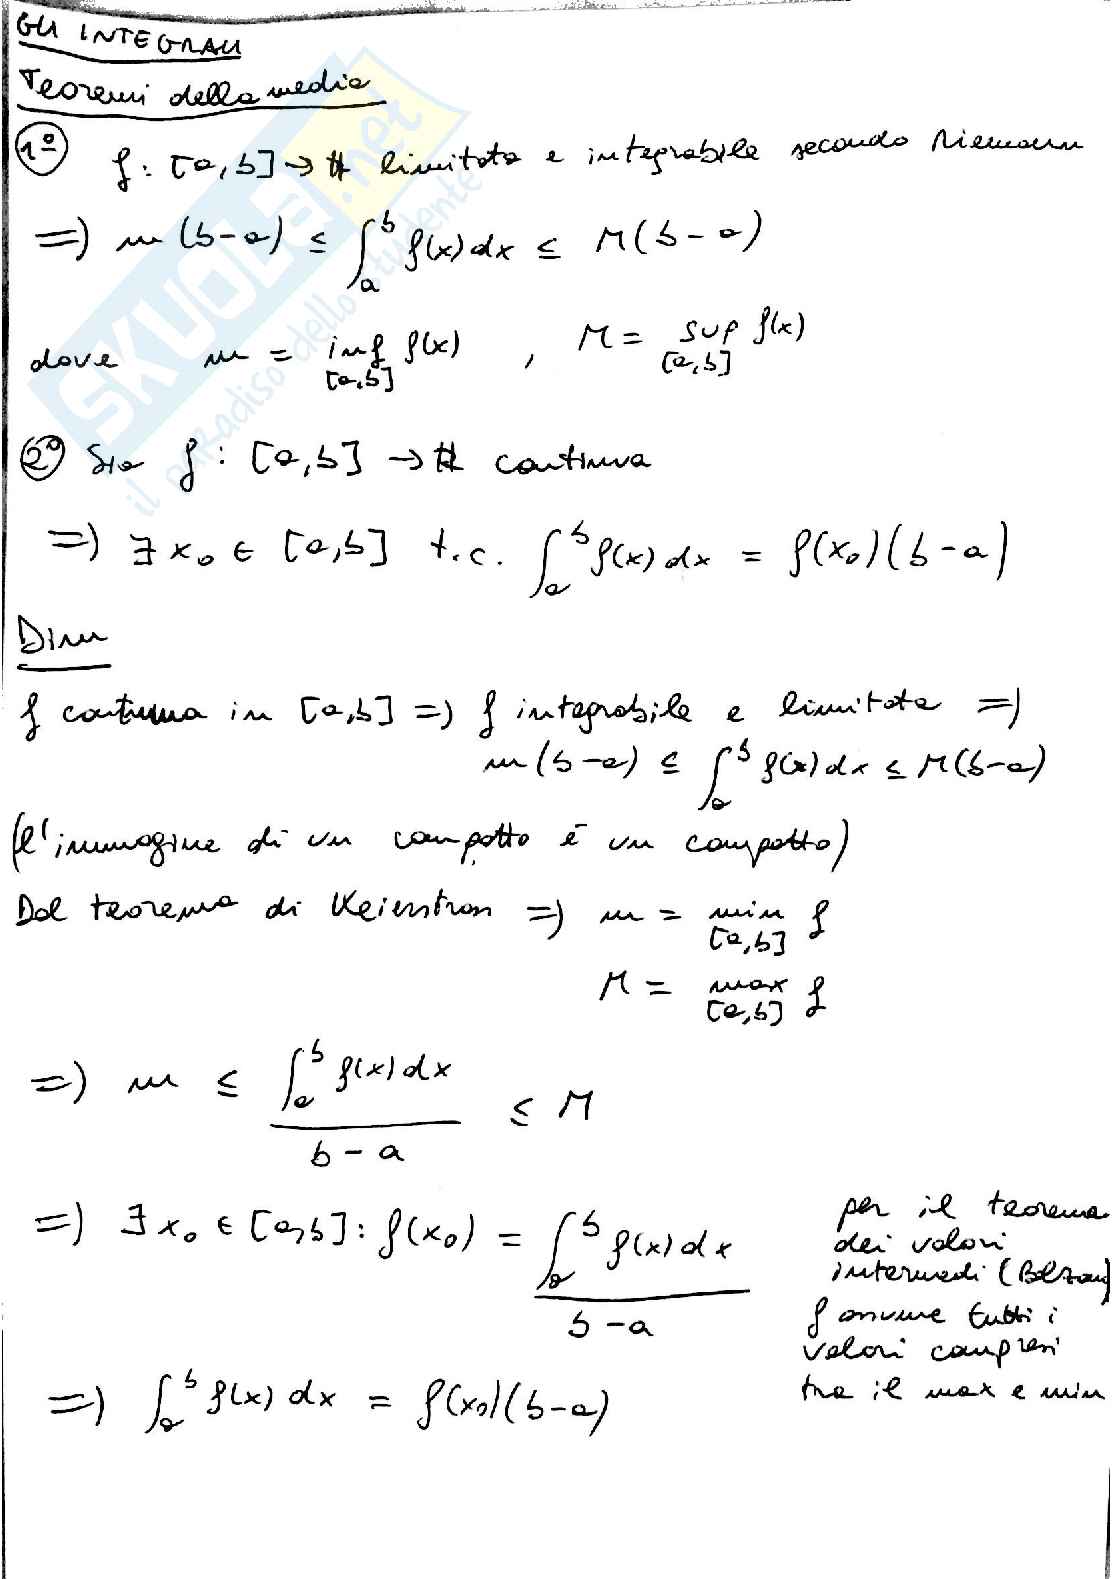 GLI INTEGRALI
Teoremi della media
1° f: [a,b] → ℝ limitata e integrabile secondo Riemann
=) m (b-a) ≤ ∫_a^b f(x) dx ≤ M (b-a)
dove m = inf_[a,b] f(x) , M = sup_[a,b] f(x)
2° Sia f: [a,b] → ℝ continua
=) ∃ x₀ ∈ [a,b] t.c. ∫_a^b f(x) dx = f(x₀)(b-a)
Dim
f continua in [a,b] =) f integrabile e limitata =)
m (b-a) ≤ ∫_a^b f(x) dx ≤ M (b-a)
(l'immagine di un compatto è un compatto)
Dal teorema di =) m = min_[a,b] f
M = max_[a,b] f
=) m ≤ ∫_a^b f(x) dx / b-a ≤ M
=) ∃ x₀ ∈ [a,b] : f(x₀) = ∫_a^b f(x) dx / b-a
per il teorema
dei valori
intermedi (Bolzano)
f assume tutti i
valori compresi
tra il max e min
=) ∫_a^b f(x) dx = f(x₀)(b-a)
SKUOLA.net
il paradiso dello studente